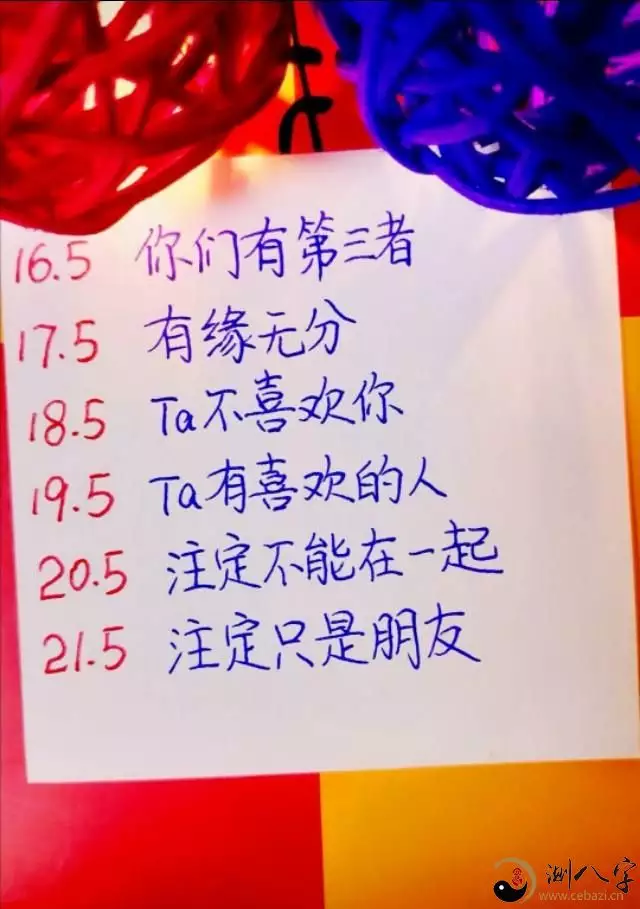 16.5 你们有第三者
17.5 有缘无分
18.5 Ta不喜欢你
19.5 Ta有喜欢的人
20.5 注定不能在一起
21.5 注定只是朋友
测八字
www.cebazi.cn